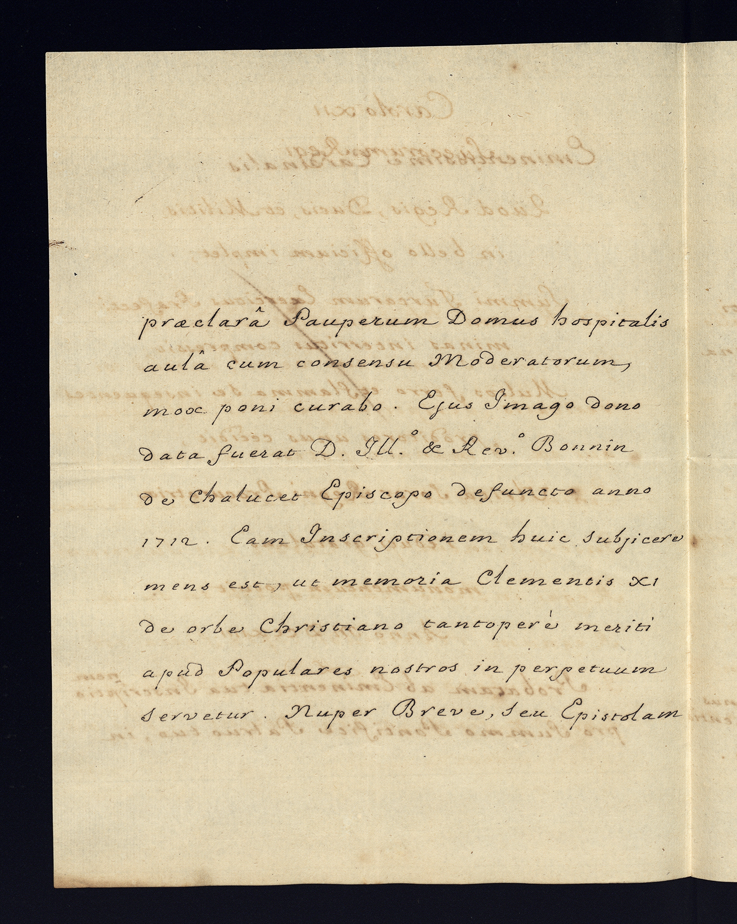 præclarâ Pauperum Domus hospitalis
aulâ cum consensu Moderatorum,
mox poni curabo. Ejus Imago dono
data fuerat D. Ill.º & Rev.º Bonnin
de Chalucet Episcopo defuncto anno
1712. Eam Inscriptionem huic subjicere
mens est, ut memoria Clementis XI
de orbe Christiano tantoperè meriti
apud Populares nostros in perpetuum
servetur. Nuper Breve, seu Epistolam